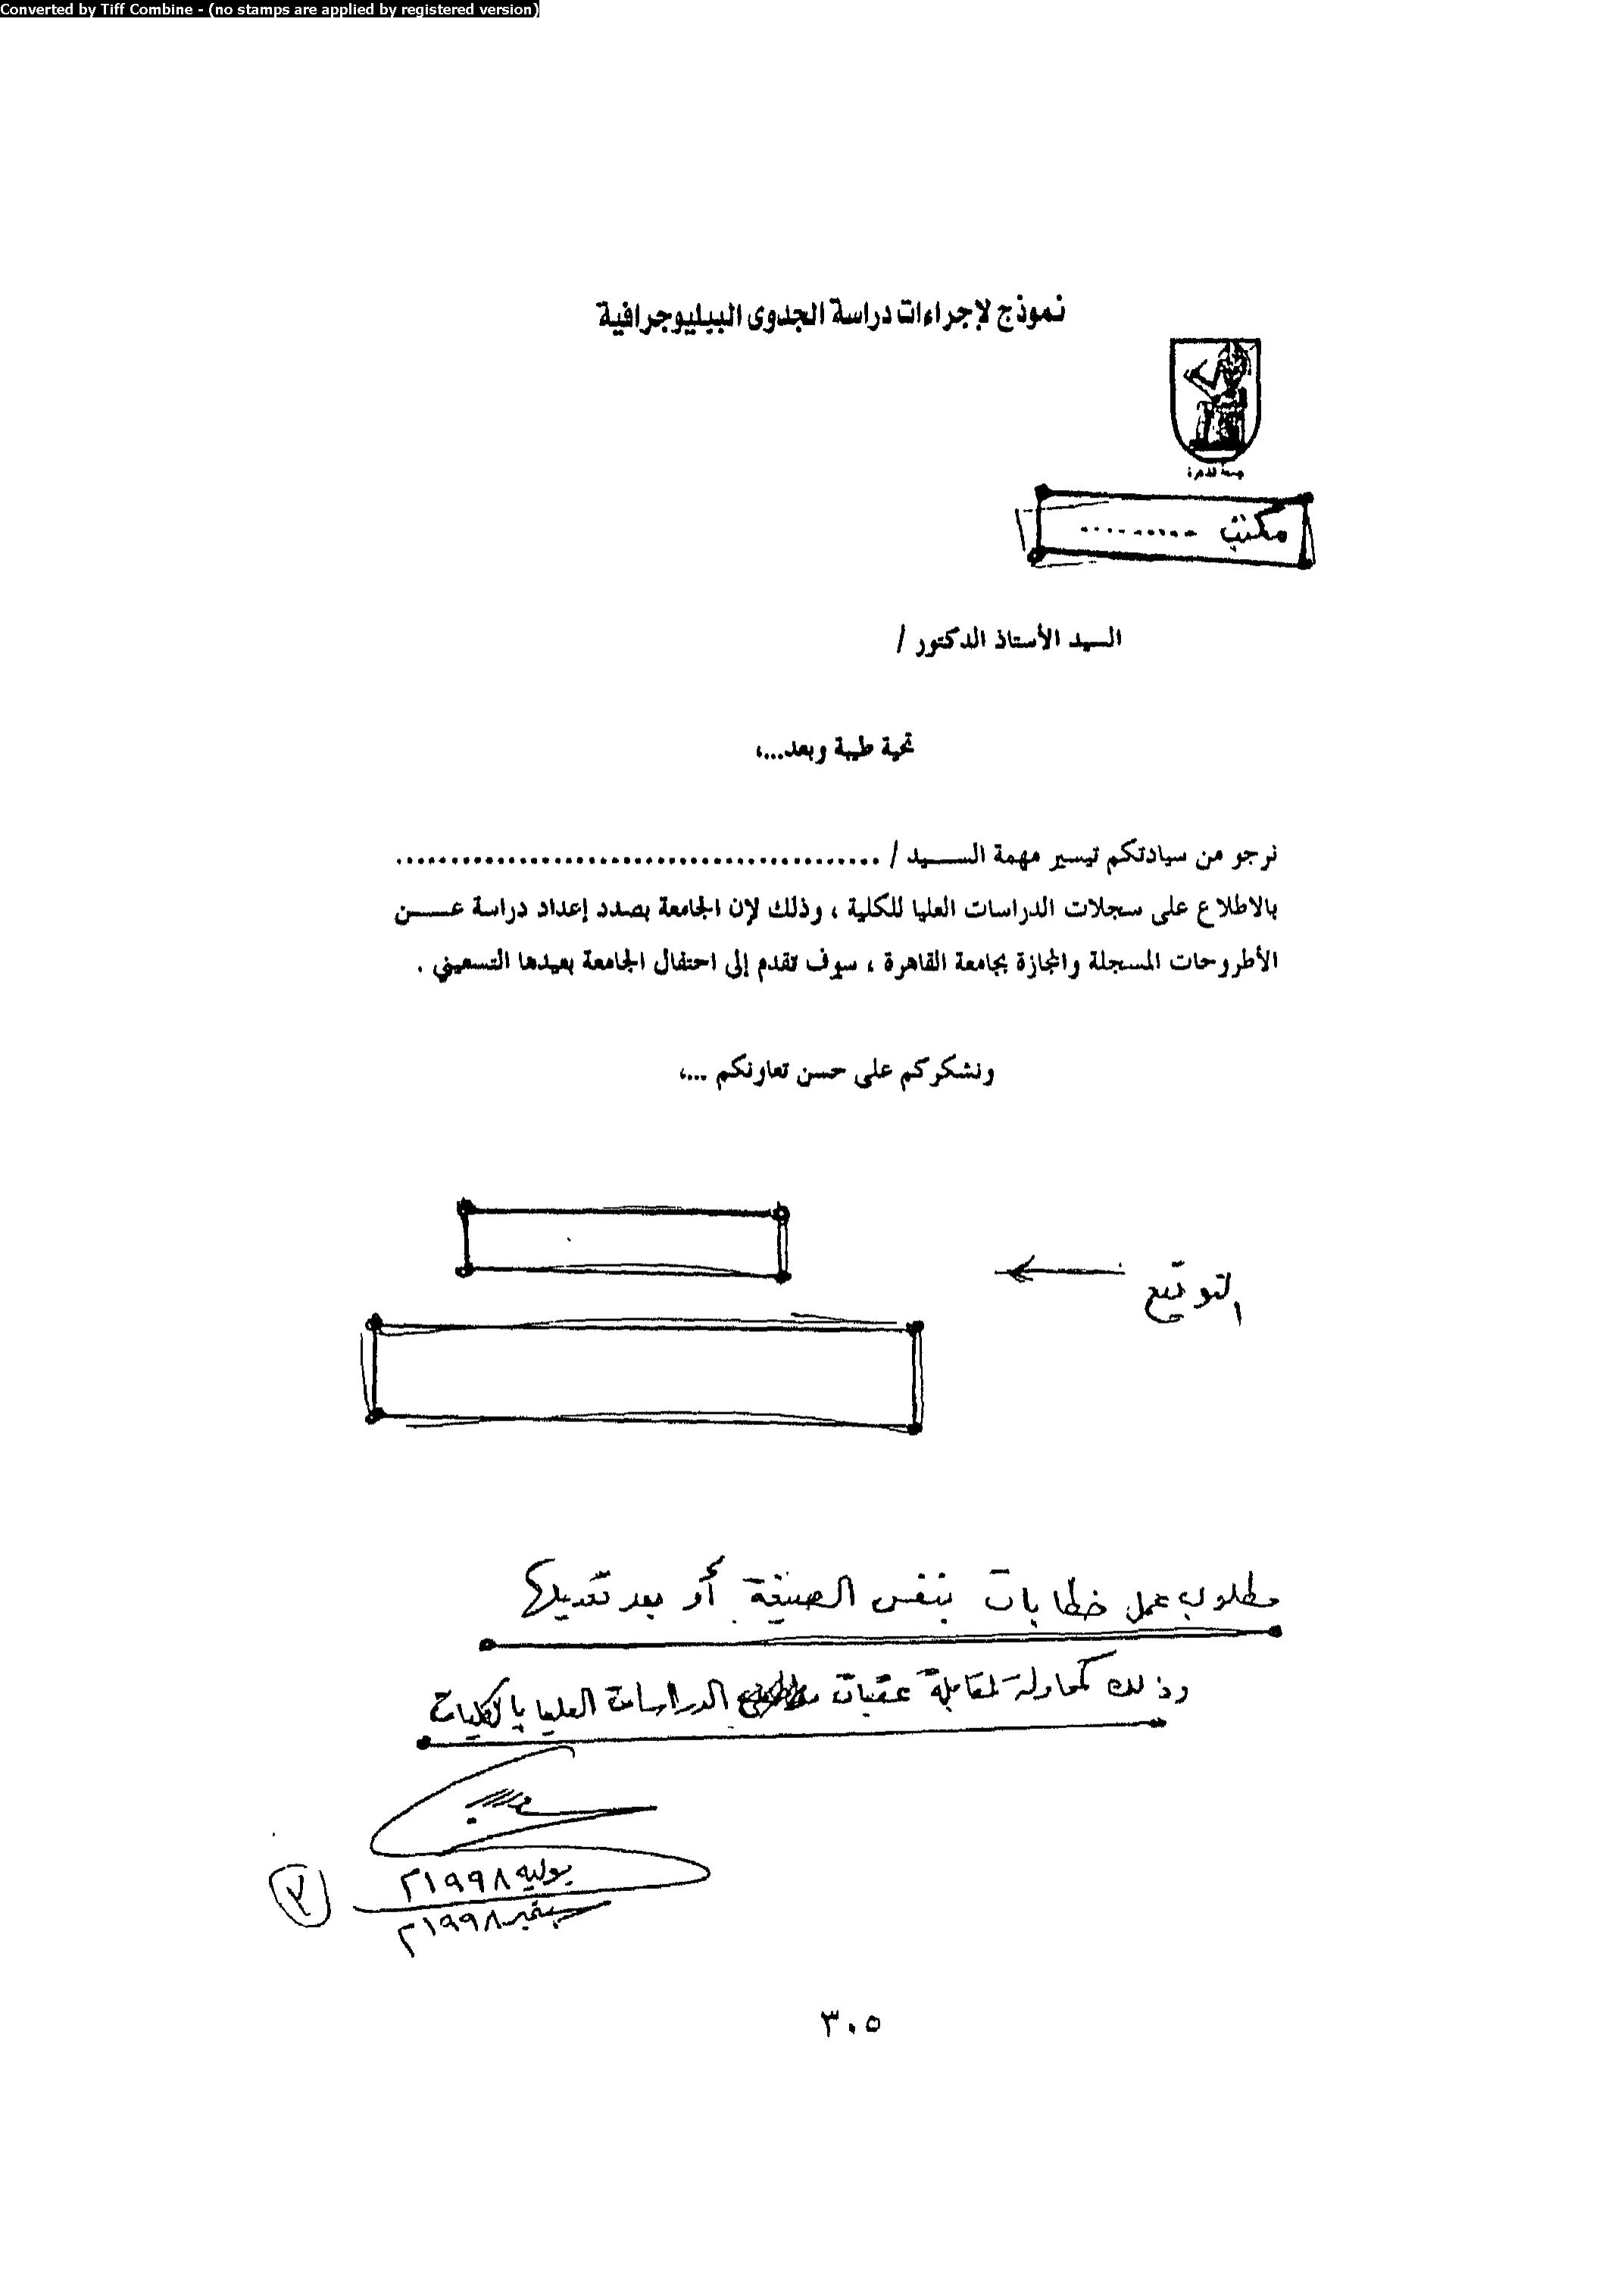 Converted by Tiff Combine - (no stamps are applied by registered version)
نموذج لإجراءات دراسة الجدوى الببليوجرافية
جامعة القاهرة
مكتب .........
السيد الأستاذ الدكتور /
تحية طيبة وبعد...،
نرجو من سيادتكم تيسير مهمة السـيد / ..........................................
بالاطلاع على سجلات الدراسات العليا للكلية ، وذلك لإن الجامعة بصدد إعداد دراسة عـن
الأطروحات المسجلة والمجازة بجامعة القاهرة ، سوف تقدم إلى احتفال الجامعة بعيدها التسعيني .
ونشكركم على حسن تعاونكم ...،
التوقيع
مطلوب عمل خطابات بنفس الصيغة أو بعد تعديلها
وذلك كمحاولة لمقابلة عقبات الدراسات العليا بالكليات
يوليه ١٩٩٨م
سبتمبر ١٩٩٨م
٢
٣٠٥